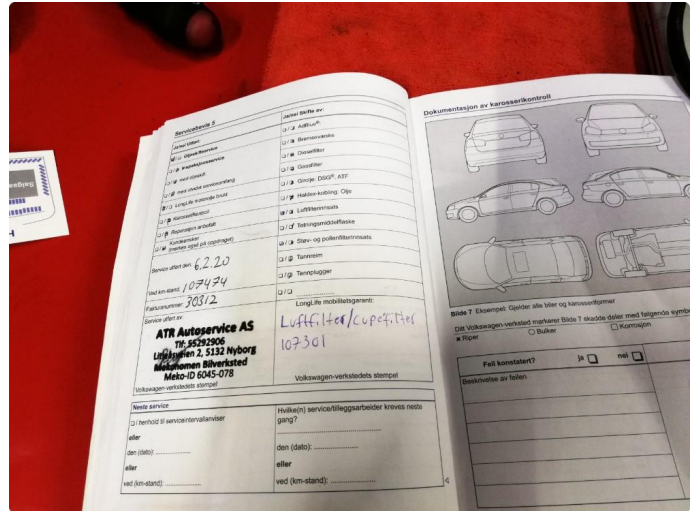 Servicebevis 5
Ja/nei Utført:
Oljeskiftservice
Inspeksjonsservice
med oljeskift
med utvidet serviceomfang
LongLife motorolje brukt
Karosserikontroll
Reparasjon anbefalt
Kundeønsker
(merkes også på oppdraget)
Service utført den: 6.2.20
Ved km-stand: 107474
Fakturanummer: 30312
Service utført av:
ATR Autoservice AS
Tlf: 55292906
2, 5132 Nyborg
Mekonomen Bilverksted
Meko-ID 6045-078
Volkswagen-verkstedets stempel
Ja/nei Skifte av:
AdBlue®
Bremsevæske
Dieselfilter
Gassfilter
Girolje: DSG®, ATF
Haldex-kobling: Olje
Luftfilterinnsats
Tetningsmiddelflaske
Støv- og pollenfilterinnsats
Tannreim
Tennplugger
LongLife mobilitetsgaranti:
Luftfilter/cupefilter
107301
Volkswagen-verkstedets stempel
Neste service
I henhold til serviceintervallanviser
eller
den (dato):
eller
ved (km-stand):
Hvilke(n) service/tilleggsarbeider kreves neste
gang?
den (dato):
eller
ved (km-stand):
Dokumentasjon av karosserikontroll
Bilde 7 Eksempel: Gjelder alle biler og karosseriformer
Ditt Volkswagen-verksted markerer Bilde 7 skadde deler med følgende symboler
× Riper
○ Bulker
□ Korrosjon
Feil konstatert? ja □ nei □
Beskrivelse av feilen